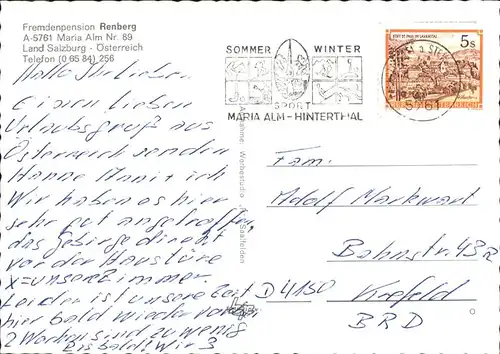 Fremdenpension Renberg
A-5761 Maria Alm Nr. 89
Land Salzburg - Österreich
Telefon (0 65 84) 256
Hallo Ihr Lieben.
Einen lieben
Urlaubsgruß aus
Österreich senden
Hanne Manit ich
Wir haben es hier
sehr gut angetroffen,
das Gebirge direkt
vor der Haustüre
X=unser Zimmer.
Leider ist unsere Zeit
hier bald wieder vorbei
2 Wochen sind zu wenig
Bis bald Wir 3
SOMMER WINTER
SPORT
MARIA ALM - HINTERTHAL
5s
5761
Aufnahme: Werbestudio Saalfelden
Fam.
Adolf Markwart
Bahnstr. 43a
D 4150 Krefeld
BRD